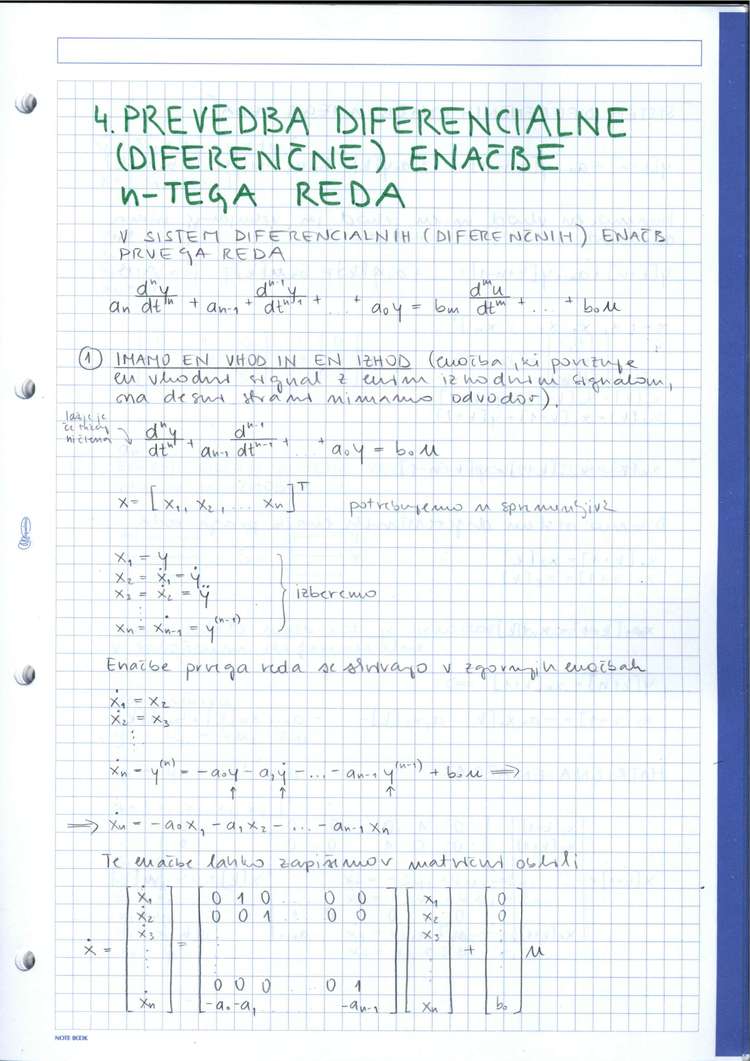 4. PREVEDBA DIFERENCIALNE
(DIFERENČNE) ENAČBE
n-TEGA REDA
V SISTEM DIFERENCIALNIH (DIFERENČNIH) ENAČB
PRVEGA REDA
an dⁿy/dtⁿ + an-1 + dⁿ⁻¹y/dtⁿ⁻¹ + . . + a₀y = bm dᵐu/dtᵐ + .. . + b₀u
① IMAMO EN VHOD IN EN IZHOD (enačba, ki povezuje
en vhodni signal z enim izhodnim signalom,
na desni strani nimamo odvodov).
lažje je
ničlena
dⁿy/dtⁿ + an-1 dⁿ⁻¹/dtⁿ⁻¹ + . . + a₀y = b₀u
x = [x₁, x₂, ... xn]ᵀ potrebujemo n spremenljivk
x₁ = y
x₂ = ẋ₁ = ẏ
x₃ = ẋ₂ = ÿ
⋮
xn = ẋn-1 = y⁽ⁿ⁻¹⁾
izberemo
Enačbe prvega reda se skrivajo v zgornjih enačbah
ẋ₁ = x₂
ẋ₂ = x₃
⋮
ẋn = y⁽ⁿ⁾ = -a₀y - a₁ẏ - ... - an-1 y⁽ⁿ⁻¹⁾ + b₀u ⟹
↑ ↑ ↑
⟹ ẋn = -a₀x₁ - a₁x₂ - ... - an-1 xn
Te enačbe lahko zapišemo v matrični obliki
ẋ₁ 0 1 0 0 0 x₁ 0
ẋ₂ 0 0 1 0 0 x₂ 0
ẋ₃ x₃
ẋ = = + u
0 0 0 0 1
ẋn -a₀ -a₁ -an-1 xn b₀
NOTE BOOK